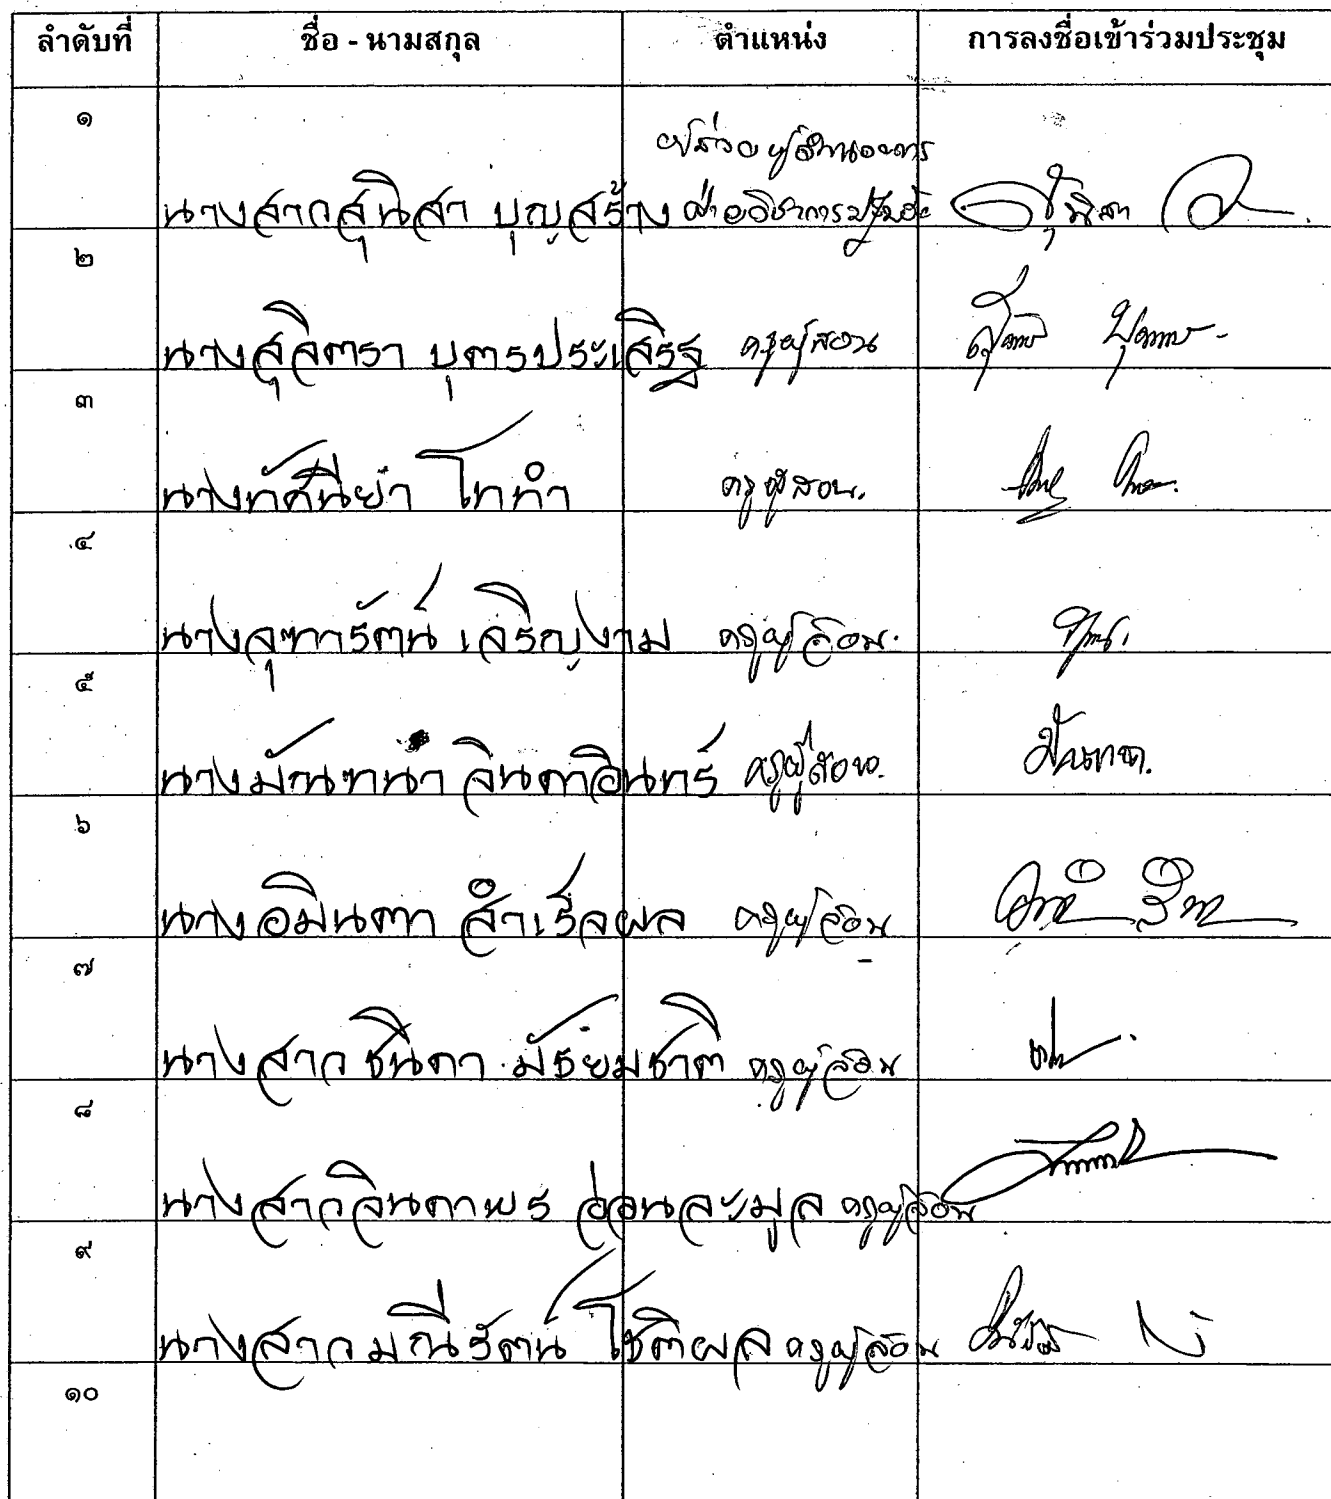 ลำดับที่ ชื่อ - นามสกุล ตำแหน่ง การลงชื่อเข้าร่วมประชุม
๑
ผู้ช่วยผู้อำนวยการ
นางสาวสุนิสา บุญสร้าง ฝ่ายวิชาการ สุนิสา
๒
นางสุจิตรา บุตรประเสริฐ ครูผู้สอน
๓
นางทัศนียา โททำ ครูผู้สอน.
๔
นางสุฑารัตน์ เจริญงาม ครูผู้สอน.
๕
นางมัณฑนา จินดาอินทร์ ครูผู้สอน.
๖
นางอมินตา สำเร็จผล ครูผู้สอน
๗
นางสาวชนิดา มัธยมชาติ ครูผู้สอน
๘
นางสาวจินดาพร อ่อนละมูล ครูผู้สอน
๙
นางสาวมณีรัตน์ โชติผล ครูผู้สอน
๑๐